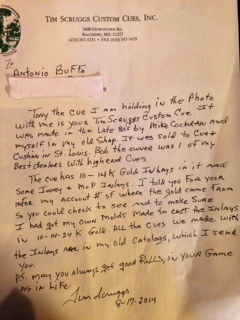 TIM SCRUGGS CUSTOM CUES, INC.
BALTIMORE, MD. 21227
To
Antonio Buffa
Tony the cue I am holding in the Photo
with me is yours Tim Scruggs Custom Cue. It
was made in the Late 80s by Mike Cochran and
myself in my old Shop. It was sold to Cue &
Cushion in St. Louis. Bob the owner was 1 of my
Best dealers with high end Cues.
The cue has 10-14K Gold Inlays in it and
Some Ivory & MOP Inlays. I told you for your
infor my account # of where the gold came from
So you could check to see and to make Sure
I had got my own Molds Made to cast the Inlays
in 10-14-24 K Gold. All the Cues we made with
the Inlays are in my old Catalogs, which I send
you.
P.S. may you always get good Rolls, in your Game
as in Life.
Tim Scruggs
8-17-2014